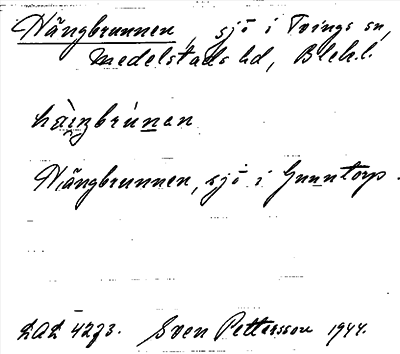 Nängbrunnen, sjö i Tvings sn,
Medelstads hd, Blek.l.
Nängbrunnen, sjö i Gunntorp.
LAL 4273. Sven Pettersson 1944.